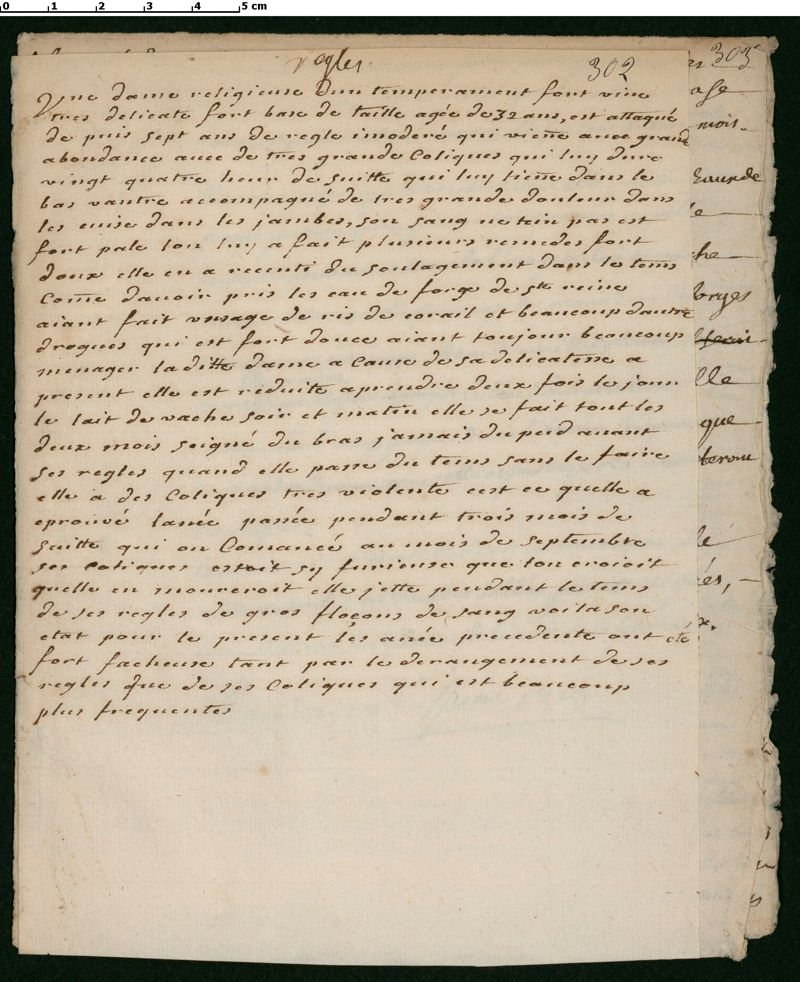 0 1 2 3 4 5 cm
regles
302
303
Une dame religieuse dun temperament fort vive
tres delicate fort base de taille agée de 32 ans, est attaqué
de puis sept ans de regle imoderé qui vieñe avec grand
abondance avec de tres grande Coliques qui luy dure
vingt quatre heur de suitte qui luy tieñe dans le
bas vantre accompagné de tres grande douleur dans
les cuise dans les jambes, son sang ne tein pas est
fort pale lon luy a fait plusieurs remedes fort
doux elle en a recenti du soulagement dans le tems
Come davoir pris les eau de forge de ste reine
aiant fait vusage de ris de corail et beaucoup dautre
drogues qui est fort douce aiant toujour beaucoup
menager laditte dame a Cause de sa delicatesse a
present elle est reduite aprendre deux fois le jour
le lait de vache soir et matin elle se fait tout les
deux mois seigné du bras jamais du pied avant
ses regles quand elle passe du tems sans le faire
elle a des Coliques tres violente cest ce quelle a
eprouvé lanée passée pendant trois mois de
suitte qui on Comancé au mois de septembre
ses coliques estoit sy furieuse que lon croioit
quelle en moureroit elle jette pendant le tems
de ses regles de gros floçons de sang voila son
etat pour le present les anée precedente ont été
fort facheuse tant par le derangement de ses
regles que de ses Coliques qui est beaucoup
plus frequentes
mois.
che
orges
lle
que